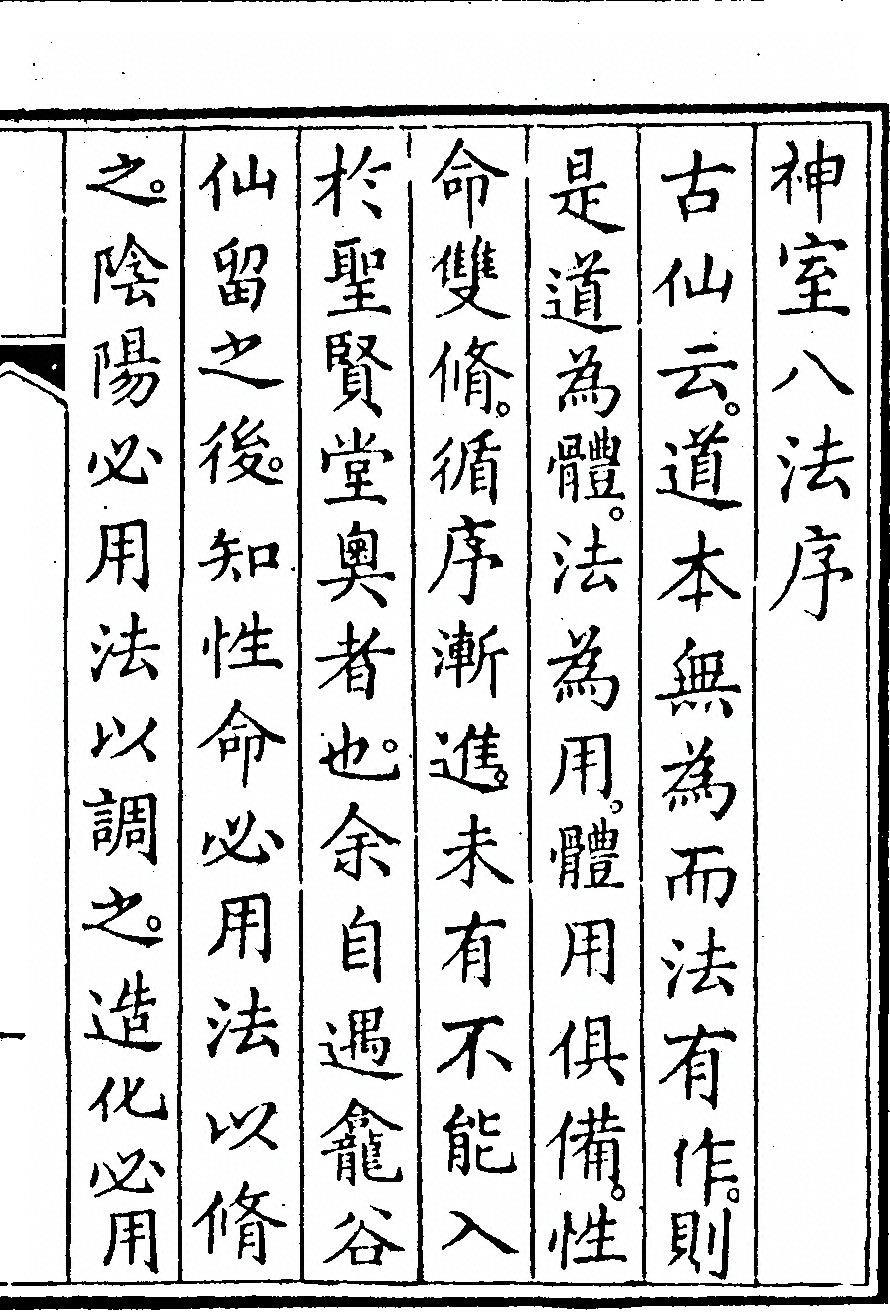 神室八法序
古仙云。道本無為而法有作。則
是道為體。法為用。體用俱備。性
命雙脩。循序漸進。未有不能入
於聖賢堂奧者也。余自遇龕谷
仙留之後。知性命必用法以脩
之。陰陽必用法以調之。造化必用
一